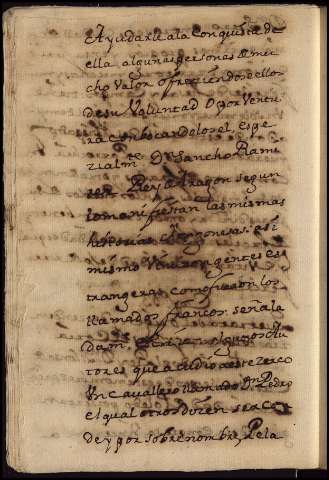 Ayudar a la Conquista de
ella algunas personas de mu
cho Valor ofreciendose ellos
de su Voluntad O por Ventu
ra Combocandolos el, espe
zialmte Dn Sancho Rami
rez Rey de Aragon segun
lo manifiestan las mismas
historias Aragonesas. asi
mismo Vinieron gentes es
trangeras como fueron los
llamados francos, señala
damte algunos Au
tores que acudio a este zerco
Un Cavallero llamado Dn Pedro
el qual otros dizen ser Co
de y por sobrenombre, Pela